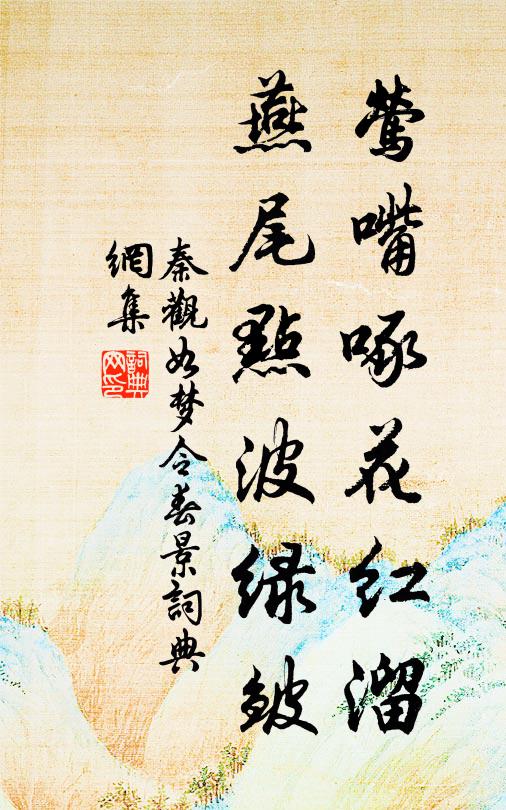 莺嘴啄花红溜
燕尾點波绿皱
秦觀如梦令春景詞典
網集
詞典
网印